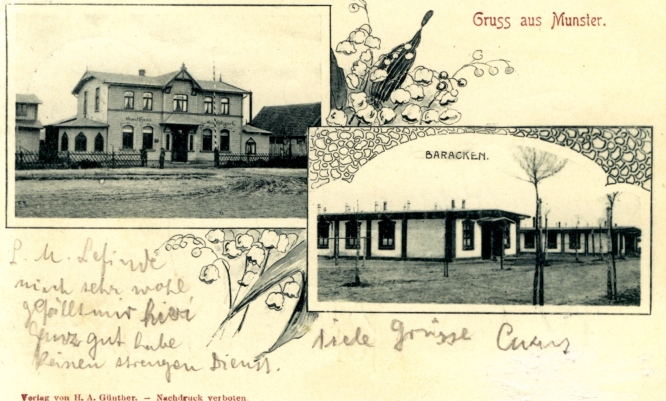 Gruss aus Munster.
BARACKEN.
L. M. Befinde
mich sehr wohl
gefällt mir hier
ganz gut habe
keinen strengen Dienst.
viele Grüsse
Verlag von H. A. Günther. – Nachdruck verboten.